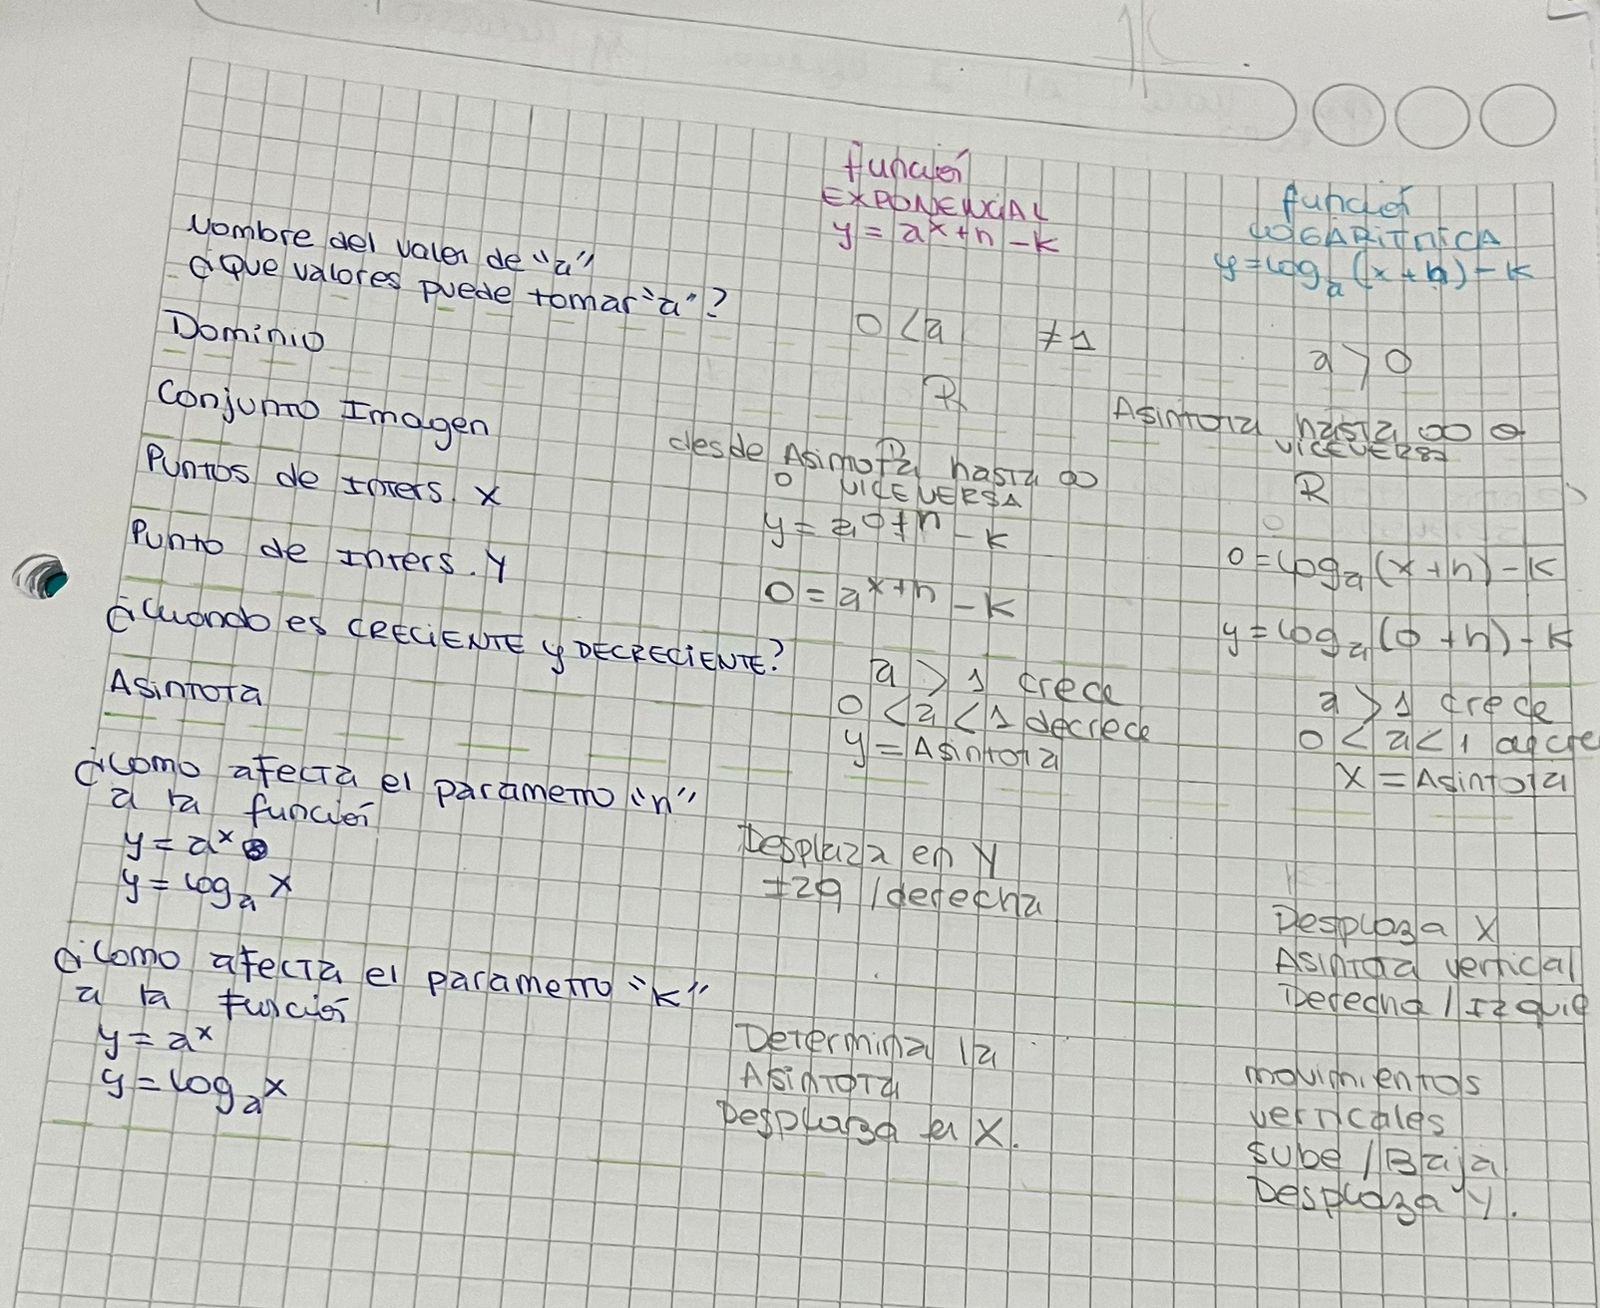 función
EXPONENCIAL
y = a^x+h - k
función
LOGARITMICA
y = log_a (x + h) - k
Nombre del valor de "a"
¿Que valores puede tomar "a"?
0 < a ≠ 1
a > 0
Dominio
R
Asintota hasta ∞ o
VICEVERSA
Conjunto Imagen
desde Asintota hasta ∞
o VICEVERSA
R
Puntos de Inters. X
y = a^0+h - k
0 = log_a (x + h) - k
Punto de Inters. Y
0 = a^x+h - k
y = log_a (0 + h) - k
¿Cuando es CRECIENTE y DECRECIENTE?
a > 1 crece
0 < a < 1 decrece
a > 1 crece
0 < a < 1
Asintota
y = Asintota
x = Asintota
¿Como afecta el parametro "h"
a la función
y = a^x
y = log_a x
Desplaza en Y
Izq / derecha
Desplaza X
Asintota vertical
Derecha / Izquie
¿Como afecta el parametro "k"
a la función
y = a^x
y = log_a x
Determina la
Asintota
Desplaza en X.
movimientos
verticales
sube / Baja
Desplaza Y.